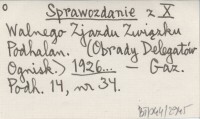 Sprawozdanie z X
Walnego Zjazdu Związku
Podhalan. (Obrady Delegatów
Ognisk.) 1926... — Gaz.
Podh. 14, nr 34.